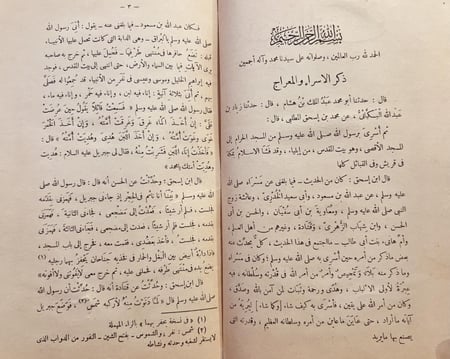 بسم الله الرحمن الرحيم
الحمد لله رب العالمين ، وصلواته على سيدنا محمد وآله أجمعين
ذكر الإسراء والمعراج
قال : حدثنا أبو محمد عبد الملك بن هشام ، قال : حدثنا زياد بن
عبد الله البكائي ، عن محمد بن إسحق المطلبي ، قال :
ثم أسرى برسول الله صلى الله عليه وسلم من المسجد الحرام إلى
المسجد الأقصى ، وهو بيت المقدس ، من إيلياء ، وقد فشا الإسلام بمكة
فى قريش وفى القبائل كلها
قال ابن إسحق : كان من الحديث – فيما بلغنى عن مسراه صلى الله
عليه وسلم ، عن عبد الله بن مسعود ، وأبى سعيد الخدرى ، وعائشة زوج
النبى صلى الله عليه وسلم ، ومعاوية بن أبى سفيان ، والحسن بن أبى
الحسن ، وابن شهاب الزهرى ، وقتادة ، وغيرهم من أهل العلم ،
وأم هانىء بنت أبى طالب – ما اجتمع فى هذا الحديث ، كل يحدث عنه
بعض ما ذكر من أمره حين أسرى به صلى الله عليه وسلم ، وكان فى مسراه
وما ذكر منه بلاء وتمحيص ، وأمر من أمر الله فى قدرته وسلطانه ، فيه
عبرة لأولى الألباب ، وهدى ورحمة وثبات لمن آمن بالله وصدق ،
وكان من أمر الله على يقين ، فأسرى به كيف شاء [وكما شاء] ليريه من
آياته ما أراد ، حتى عاين ما عاين من أمره وسلطانه العظيم ، وقدرته التى
يصنع بها ما يريد
– ٣ –
فكان عبد الله بن مسعود – فيما بلغنى عنه – يقول : أتى رسول الله
صلى الله عليه وسلم بالبراق – وهى الدابة التى كانت تحمل عليها الأنبياء
قبله ، تضع حافرها فى منتهى طرفها – فحمل عليها ، ثم خرج به صاحبه
يرى الآيات فيما بين السماء والأرض ، حتى انتهى إلى بيت المقدس ، فوجد
فيه إبراهيم الخليل وموسى وعيسى فى نفر من الأنبياء ، قد جمعوا له فصلى
بهم ، ثم أتى بثلاثة آنية : إناء فيه لبن ، وإناء فيه خمر ، وإناء فيه ماء ،
قال رسول الله صلى الله عليه وسلم : فسمعت قائلا يقول حين عرضت
على : إن أخذ الماء غرق وغرقت أمته ، وإن أخذ الخمر
غوى وغوت أمته ، وإن أخذ اللبن هدى وهديت أمته ، قال :
فأخذت إناء اللبن فشربت منه ، فقال لى جبريل عليه السلام : هديت
وهديت أمتك يا محمد »
قال ابن إسحق : وحدثت عن الحسن أنه قال : قال رسول الله
صلى الله عليه وسلم : بينا أنا نائم فى الحجر إذ جاءنى جبريل ، فهمزنى بقدمه
فجلست ، فلم أر شيئا ، فعدت إلى مضجعى ، فجاءنى الثانية ، فهمزنى
بقدمه ، فجلست ، فلم أر شيئا ، فعدت إلى مضجعى ، فجاءنى الثالثة ، فهمزنى
بقدمه ، فجلست ، فأخذ بعضدى ، فقمت معه ، فخرج إلى باب المسجد ،
فإذا دابة أبيض بين البغل والحمار فى فخذيه جناحان يحفز بهما رجليه (١)
يضع يده فى منتهى طرفه ، فحملنى عليه ، ثم خرج معى لا يفوتنى ولا أفوته »
قال ابن إسحق : وحدثت عن قتادة أنه قال : حدثت أن رسول الله
صلى الله عليه وسلم قال « لما دنوت منه لأركبه شمس (٢) ، فوضع جبريل
(١) فى نسخة « يحفر بهما » بالراء المهملة
(٢) شمس : نفر ، والشموس – بفتح الشين – النفور من الدواب الذى
لا يستقر لشغبه وحدته ونشاطه